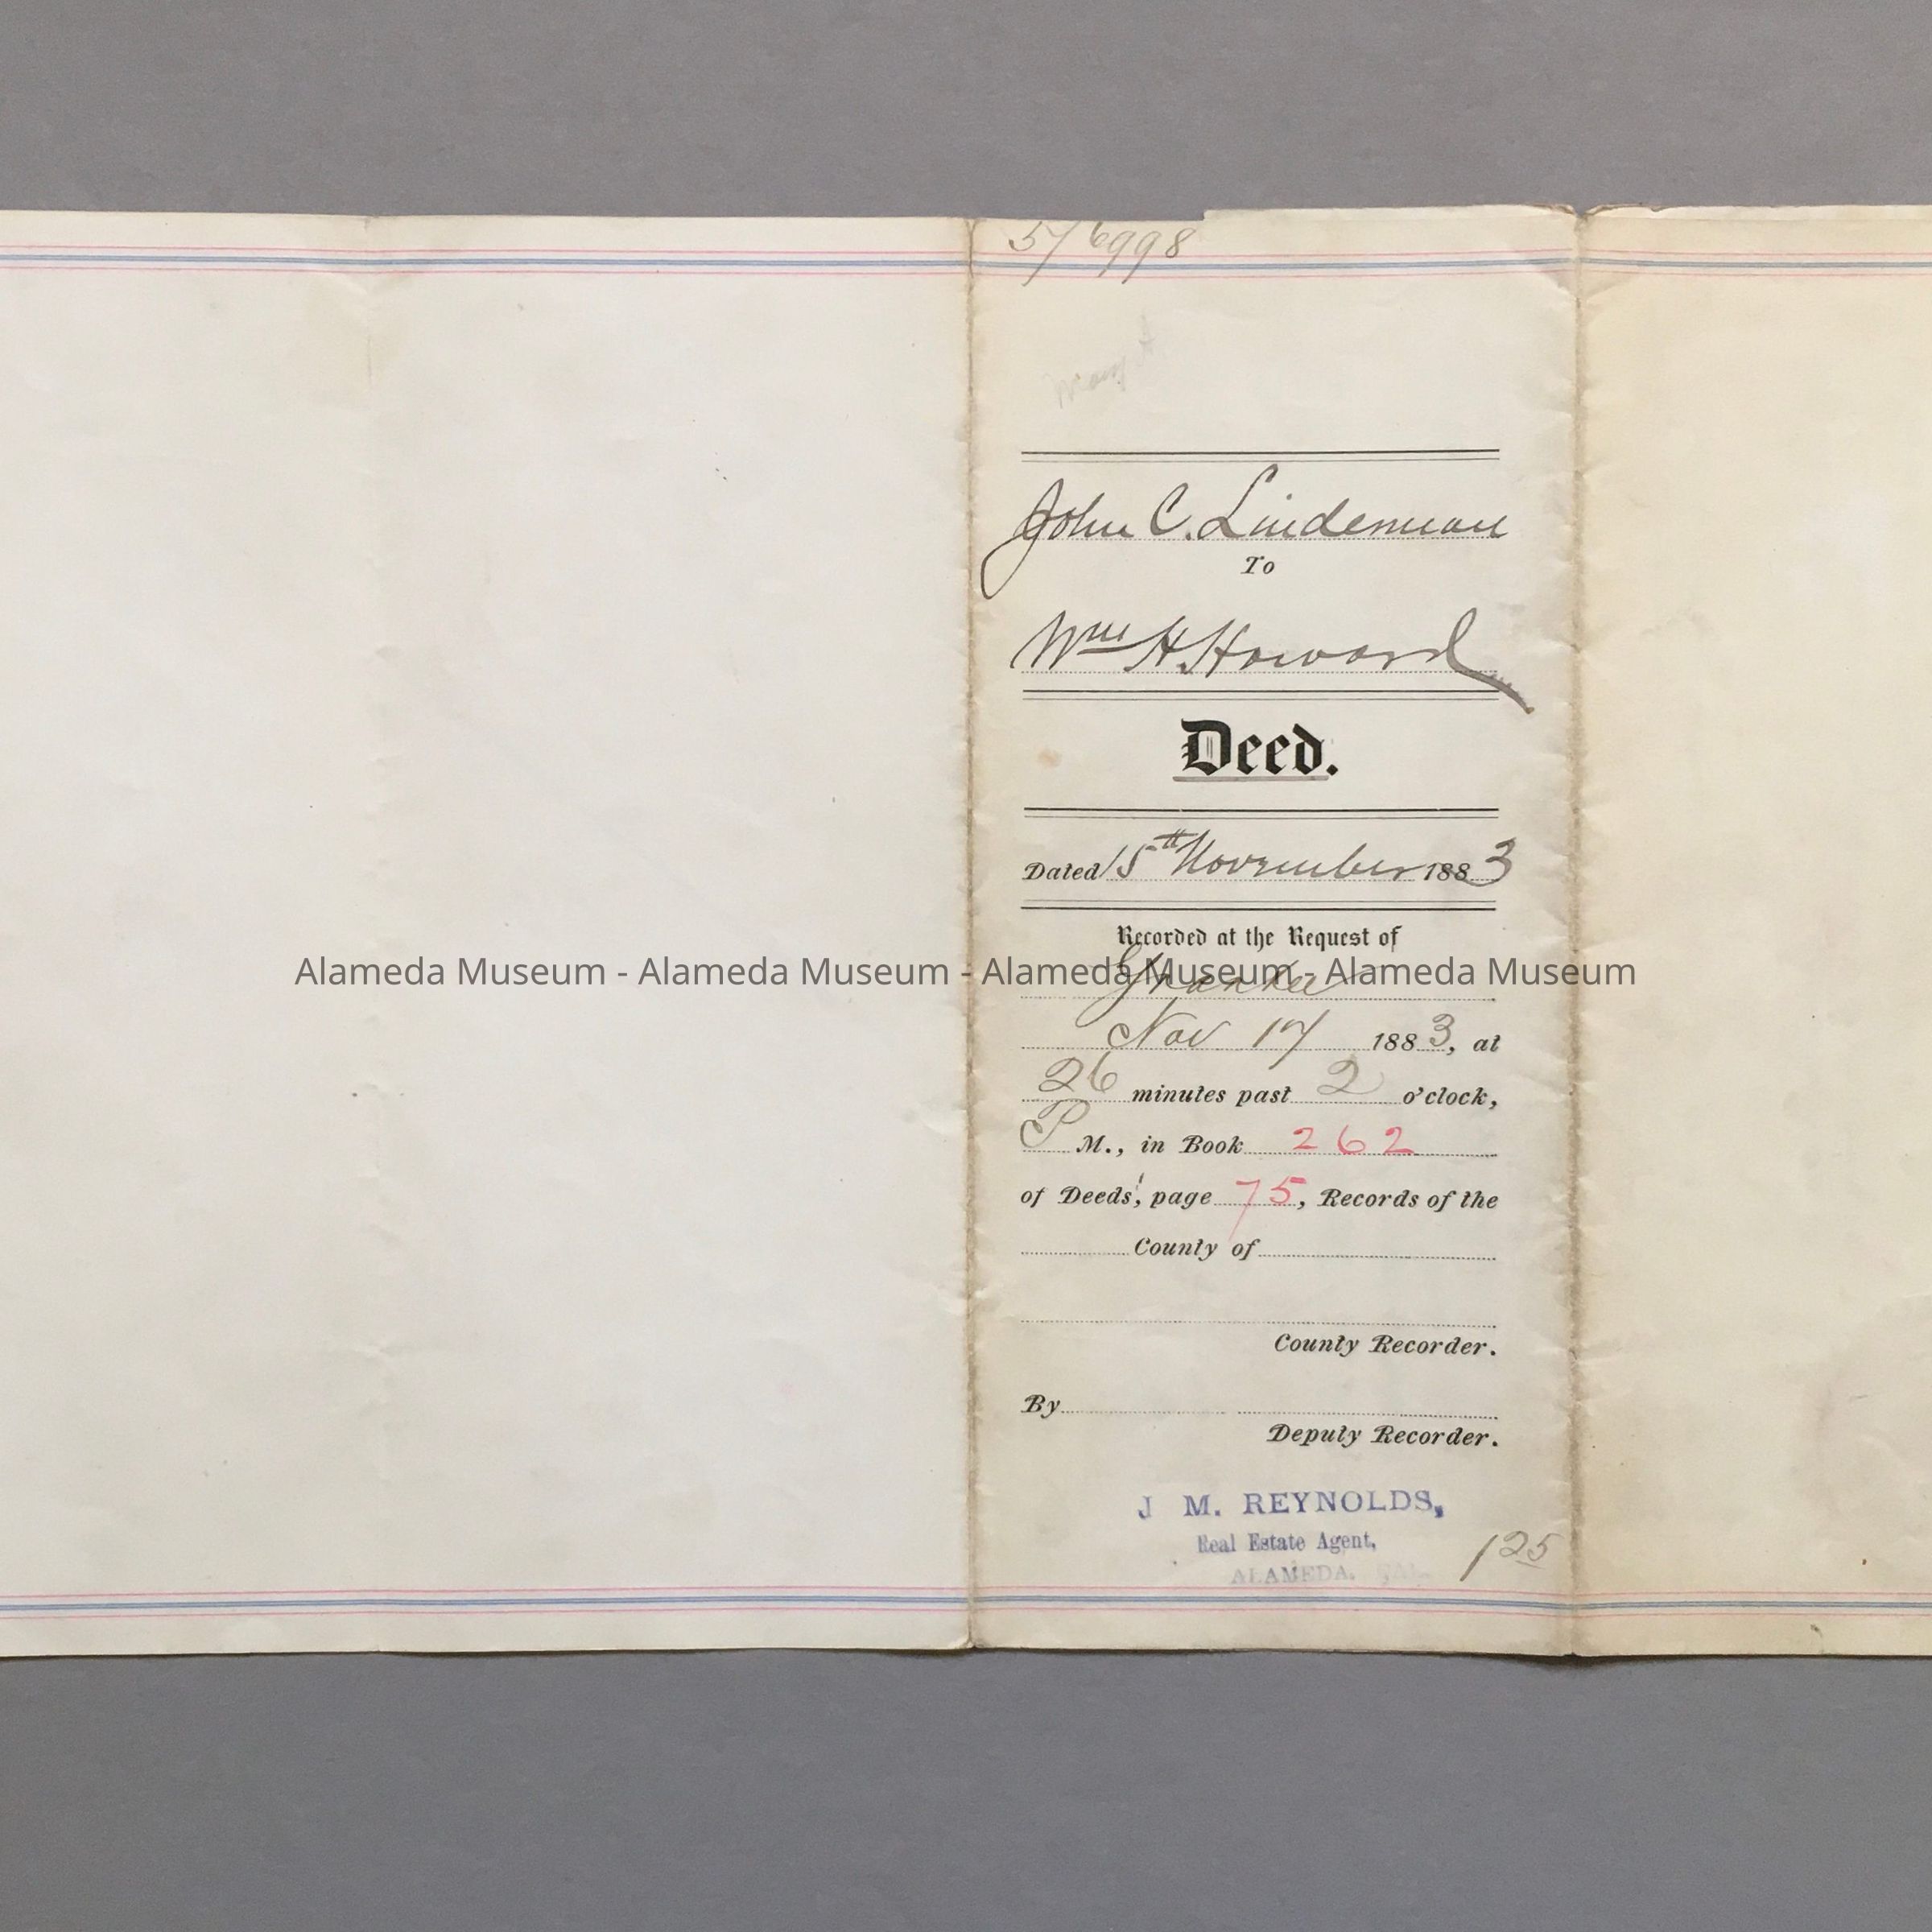 576998
John C. Lindeman
To
Wm H. Howard
Deed.
Dated 15th November 1883
Recorded at the Request of
Alameda Museum - Alameda Museum - Alameda Museum - Alameda Museum
Grantee
Nov 17 1883, at
26 minutes past 2 o'clock,
P M., in Book 262
of Deeds, page 75, Records of the
County of
County Recorder.
By
Deputy Recorder.
J M. REYNOLDS,
Real Estate Agent,
ALAMEDA. CAL.
125